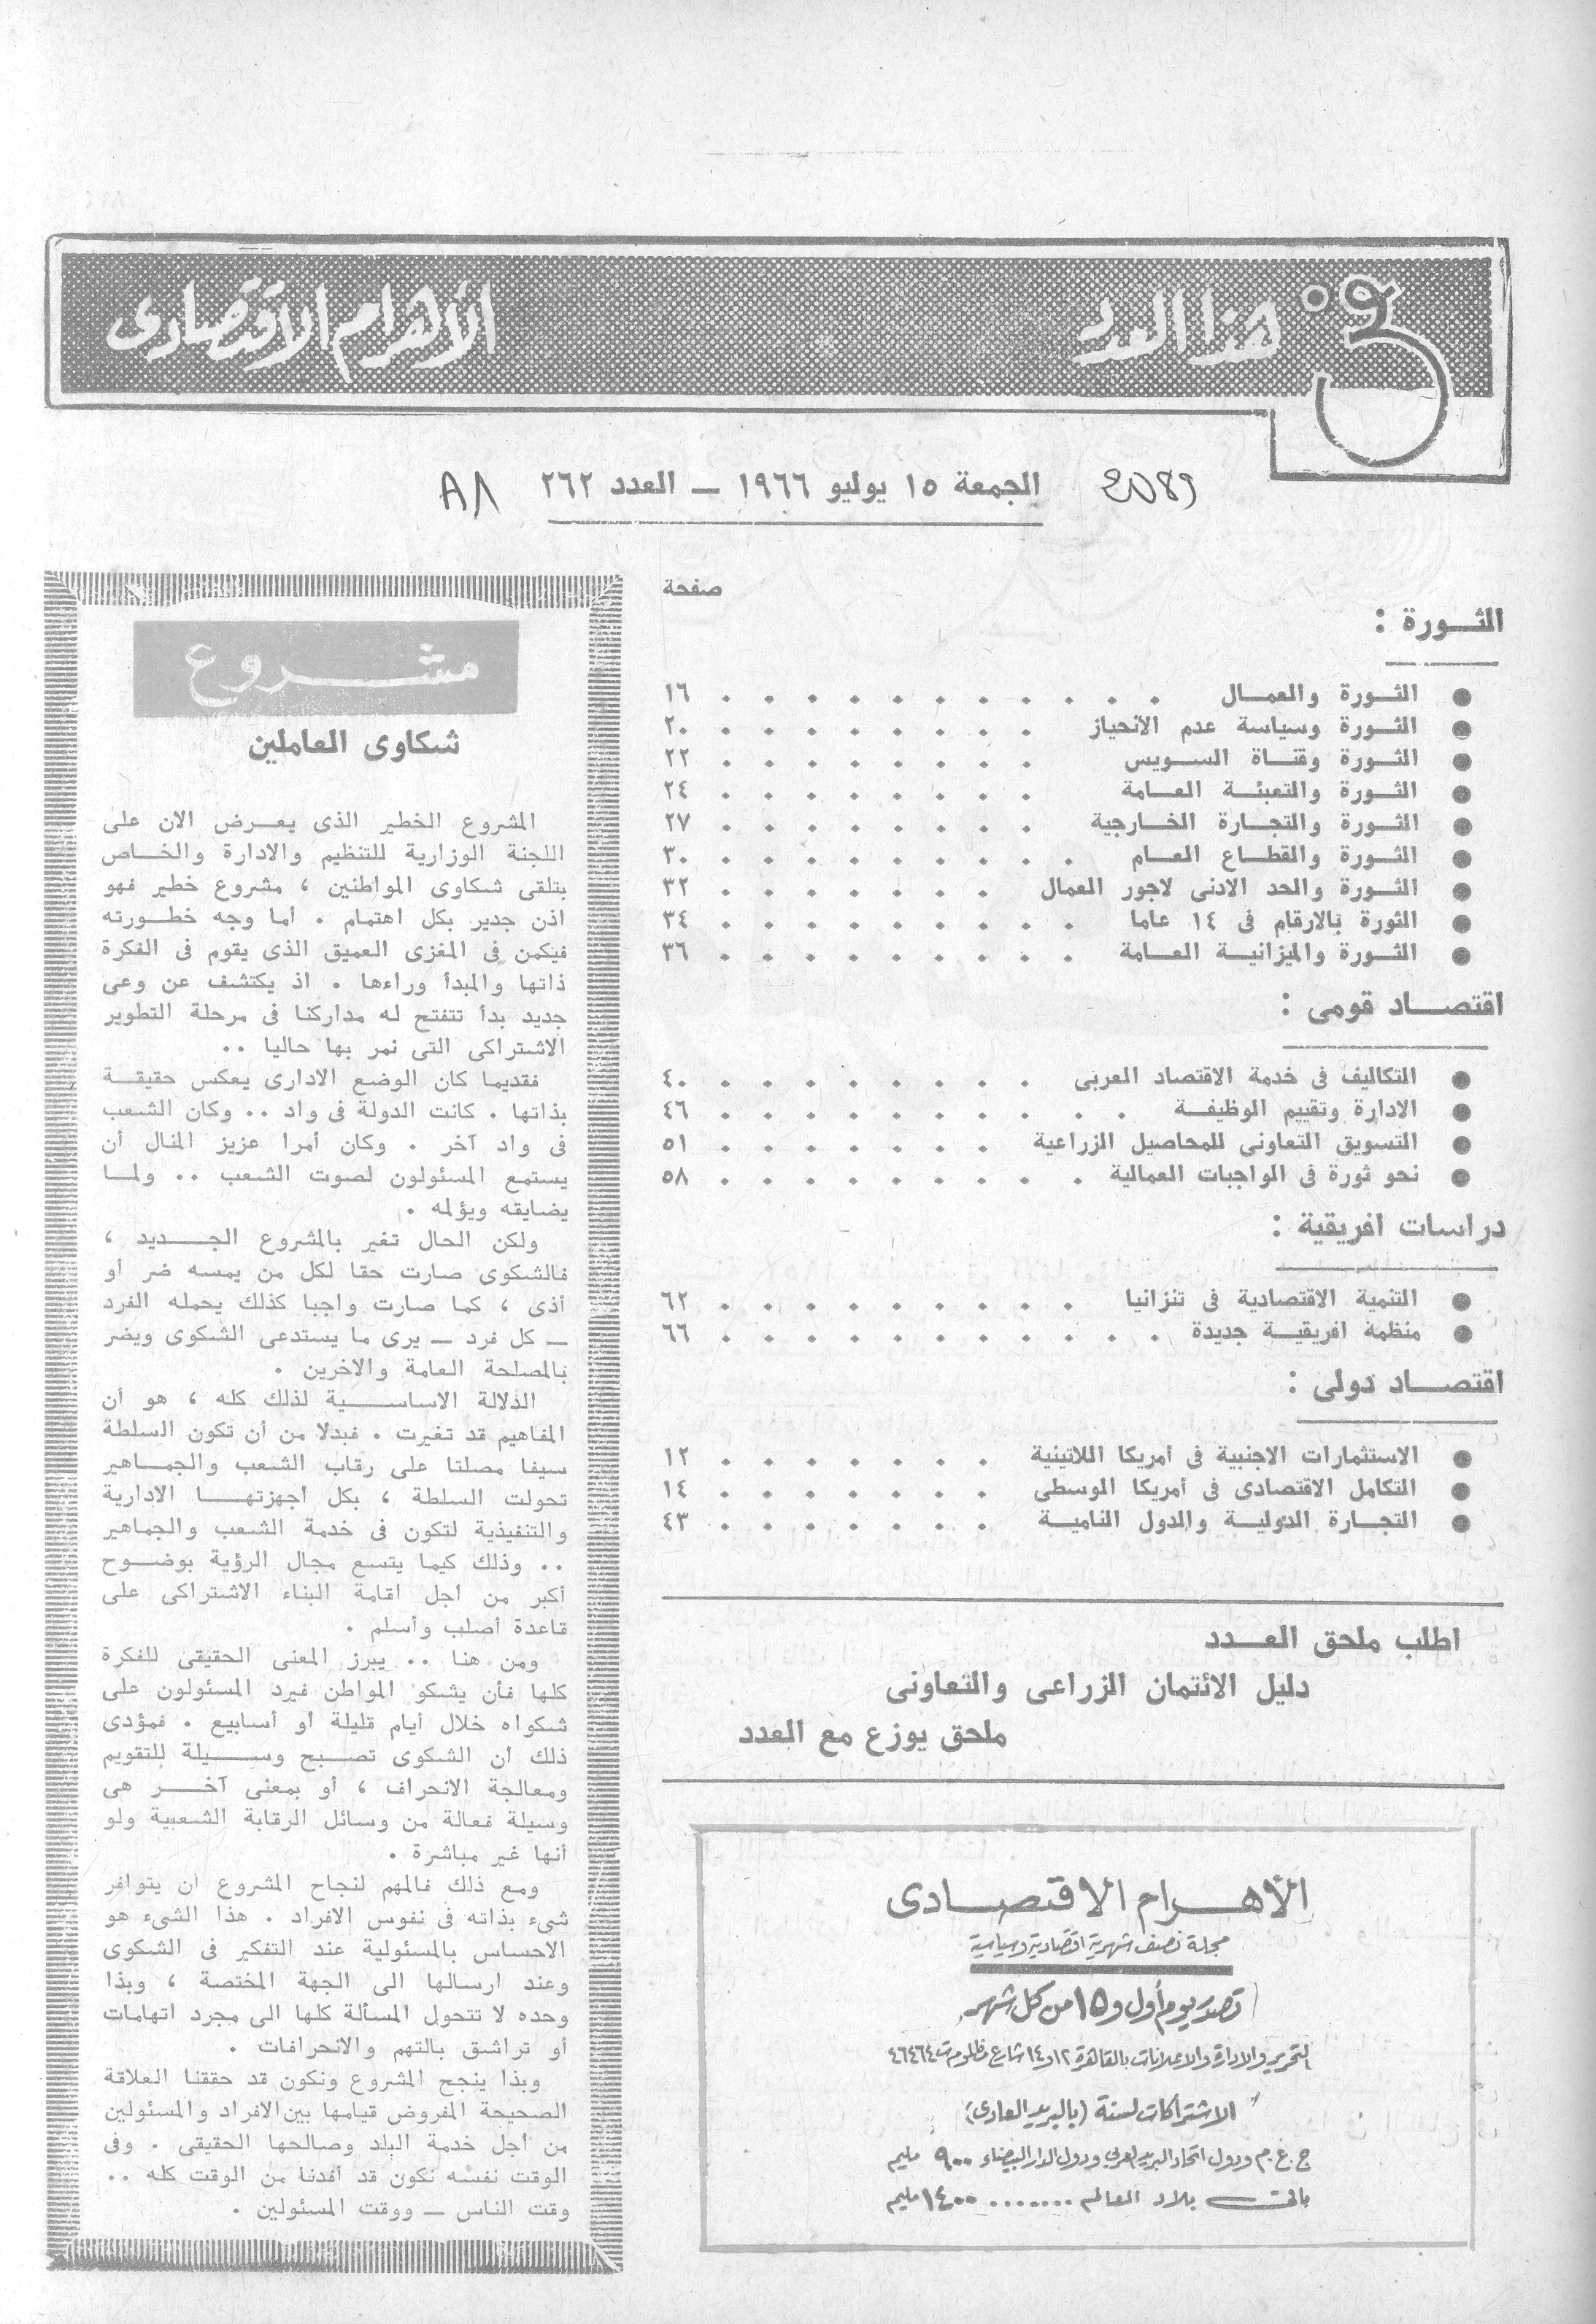 فى هذا العدد
الأهرام الاقتصادى
2089
الجمعة ١٥ يوليو ١٩٦٦ — العدد ٢٦٢
٨١
صفحة
الثورة :
● الثورة والعمال . . . . . . . . . . . ١٦
● الثورة وسياسة عدم الانحياز . . . . . . . . ٢٠
● الثورة وقناة السويس . . . . . . . . ٢٢
● الثورة والتعبئة العامة . . . . . . . . ٢٤
● الثورة والتجارة الخارجية . . . . . . . . ٢٧
● الثورة والقطاع العام . . . . . . . . . ٣٠
● الثورة والحد الادنى لاجور العمال . . . . . . . ٣٢
● الثورة بالارقام فى ١٤ عاما . . . . . . . . . ٣٤
● الثورة والميزانية العامة . . . . . . . . . ٣٦
اقتصاد قومى :
● التكاليف فى خدمة الاقتصاد العربى . . . . . . . . ٤٠
● الادارة وتقييم الوظيفة . . . . . . . . . . ٤٦
● التسويق التعاونى للمحاصيل الزراعية . . . . . . . ٥١
● نحو ثورة فى الواجبات العمالية . . . . . . . . . ٥٨
دراسات افريقية :
● التنمية الاقتصادية فى تنزانيا . . . . . . . . . ٦٢
● منظمة افريقية جديدة . . . . . . . . . . . ٦٦
اقتصاد دولى :
● الاستثمارات الاجنبية فى أمريكا اللاتينية . . . . . . . ١٢
● التكامل الاقتصادى فى أمريكا الوسطى . . . . . . . ١٤
● التجارة الدولية والدول النامية . . . . . . . ٤٣
اطلب ملحق العدد
دليل الائتمان الزراعى والتعاونى
ملحق يوزع مع العدد
الأهرام الاقتصادى
مجلة نصف شهرية اقتصادية وسياسية
تصدر يوم أول و١٥ من كل شهر
التحرير والادارة والاعلانات بالقاهرة ١٢و١٤ شارع مظلوم ت ٤٦٤٦٤
الاشتراكات لسنة (بالبريد العادى)
ج.ع.م ودول اتحاد البريد العربى ودول الدار البيضاء ٩٠٠ مليم
باقى بلاد العالم ....... ١٤٠٠ مليم
مشروع
شكاوى العاملين
المشروع الخطير الذى يعرض الان على
اللجنة الوزارية للتنظيم والادارة والخاص
بتلقى شكاوى المواطنين ، مشروع خطير فهو
اذن جدير بكل اهتمام . أما وجه خطورته
فيكمن فى المغزى العميق الذى يقوم فى الفكرة
ذاتها والمبدأ وراءها . اذ يكتشف عن وعى
جديد بدأ تتفتح له مداركنا فى مرحلة التطوير
الاشتراكى التى نمر بها حاليا ..
فقديما كان الوضع الادارى يعكس حقيقة
بذاتها . كانت الدولة فى واد .. وكان الشعب
فى واد آخر . وكان أمرا عزيز المنال أن
يستمع المسئولون لصوت الشعب .. ولما
يضايقه ويؤلمه .
ولكن الحال تغير بالمشروع الجديد ،
فالشكوى صارت حقا لكل من يمسه ضر أو
أذى ، كما صارت واجبا كذلك يحمله الفرد
— كل فرد — يرى ما يستدعى الشكوى ويضر
بالمصلحة العامة والاخرين .
الدلالة الاساسية لذلك كله ، هو أن
المفاهيم قد تغيرت . فبدلا من أن تكون السلطة
سيفا مصلتا على رقاب الشعب والجماهير
تحولت السلطة ، بكل أجهزتها الادارية
والتنفيذية لتكون فى خدمة الشعب والجماهير
.. وذلك كيما يتسع مجال الرؤية بوضوح
أكبر من أجل اقامة البناء الاشتراكى على
قاعدة أصلب وأسلم .
ومن هنا .. يبرز المعنى الحقيقى للفكرة
كلها فأن يشكو المواطن فيرد المسئولون على
شكواه خلال أيام قليلة أو أسابيع . فمؤدى
ذلك أن الشكوى تصبح وسيلة للتقويم
ومعالجة الانحراف ، أو بمعنى آخر هى
وسيلة فعالة من وسائل الرقابة الشعبية ولو
أنها غير مباشرة .
ومع ذلك فالمهم لنجاح المشروع ان يتوافر
شىء بذاته فى نفوس الافراد . هذا الشىء هو
الاحساس بالمسئولية عند التفكير فى الشكوى
وعند ارسالها الى الجهة المختصة ، وبذا
وحده لا تتحول المسألة كلها الى مجرد اتهامات
أو تراشق بالتهم والانحرافات .
وبذا ينجح المشروع ونكون قد حققنا العلاقة
الصحيحة المفروض قيامها بين الافراد والمسئولين
من أجل خدمة البلد وصالحها الحقيقى . وفى
الوقت نفسه نكون قد أفدنا من الوقت كله ..
وقت الناس — ووقت المسئولين .